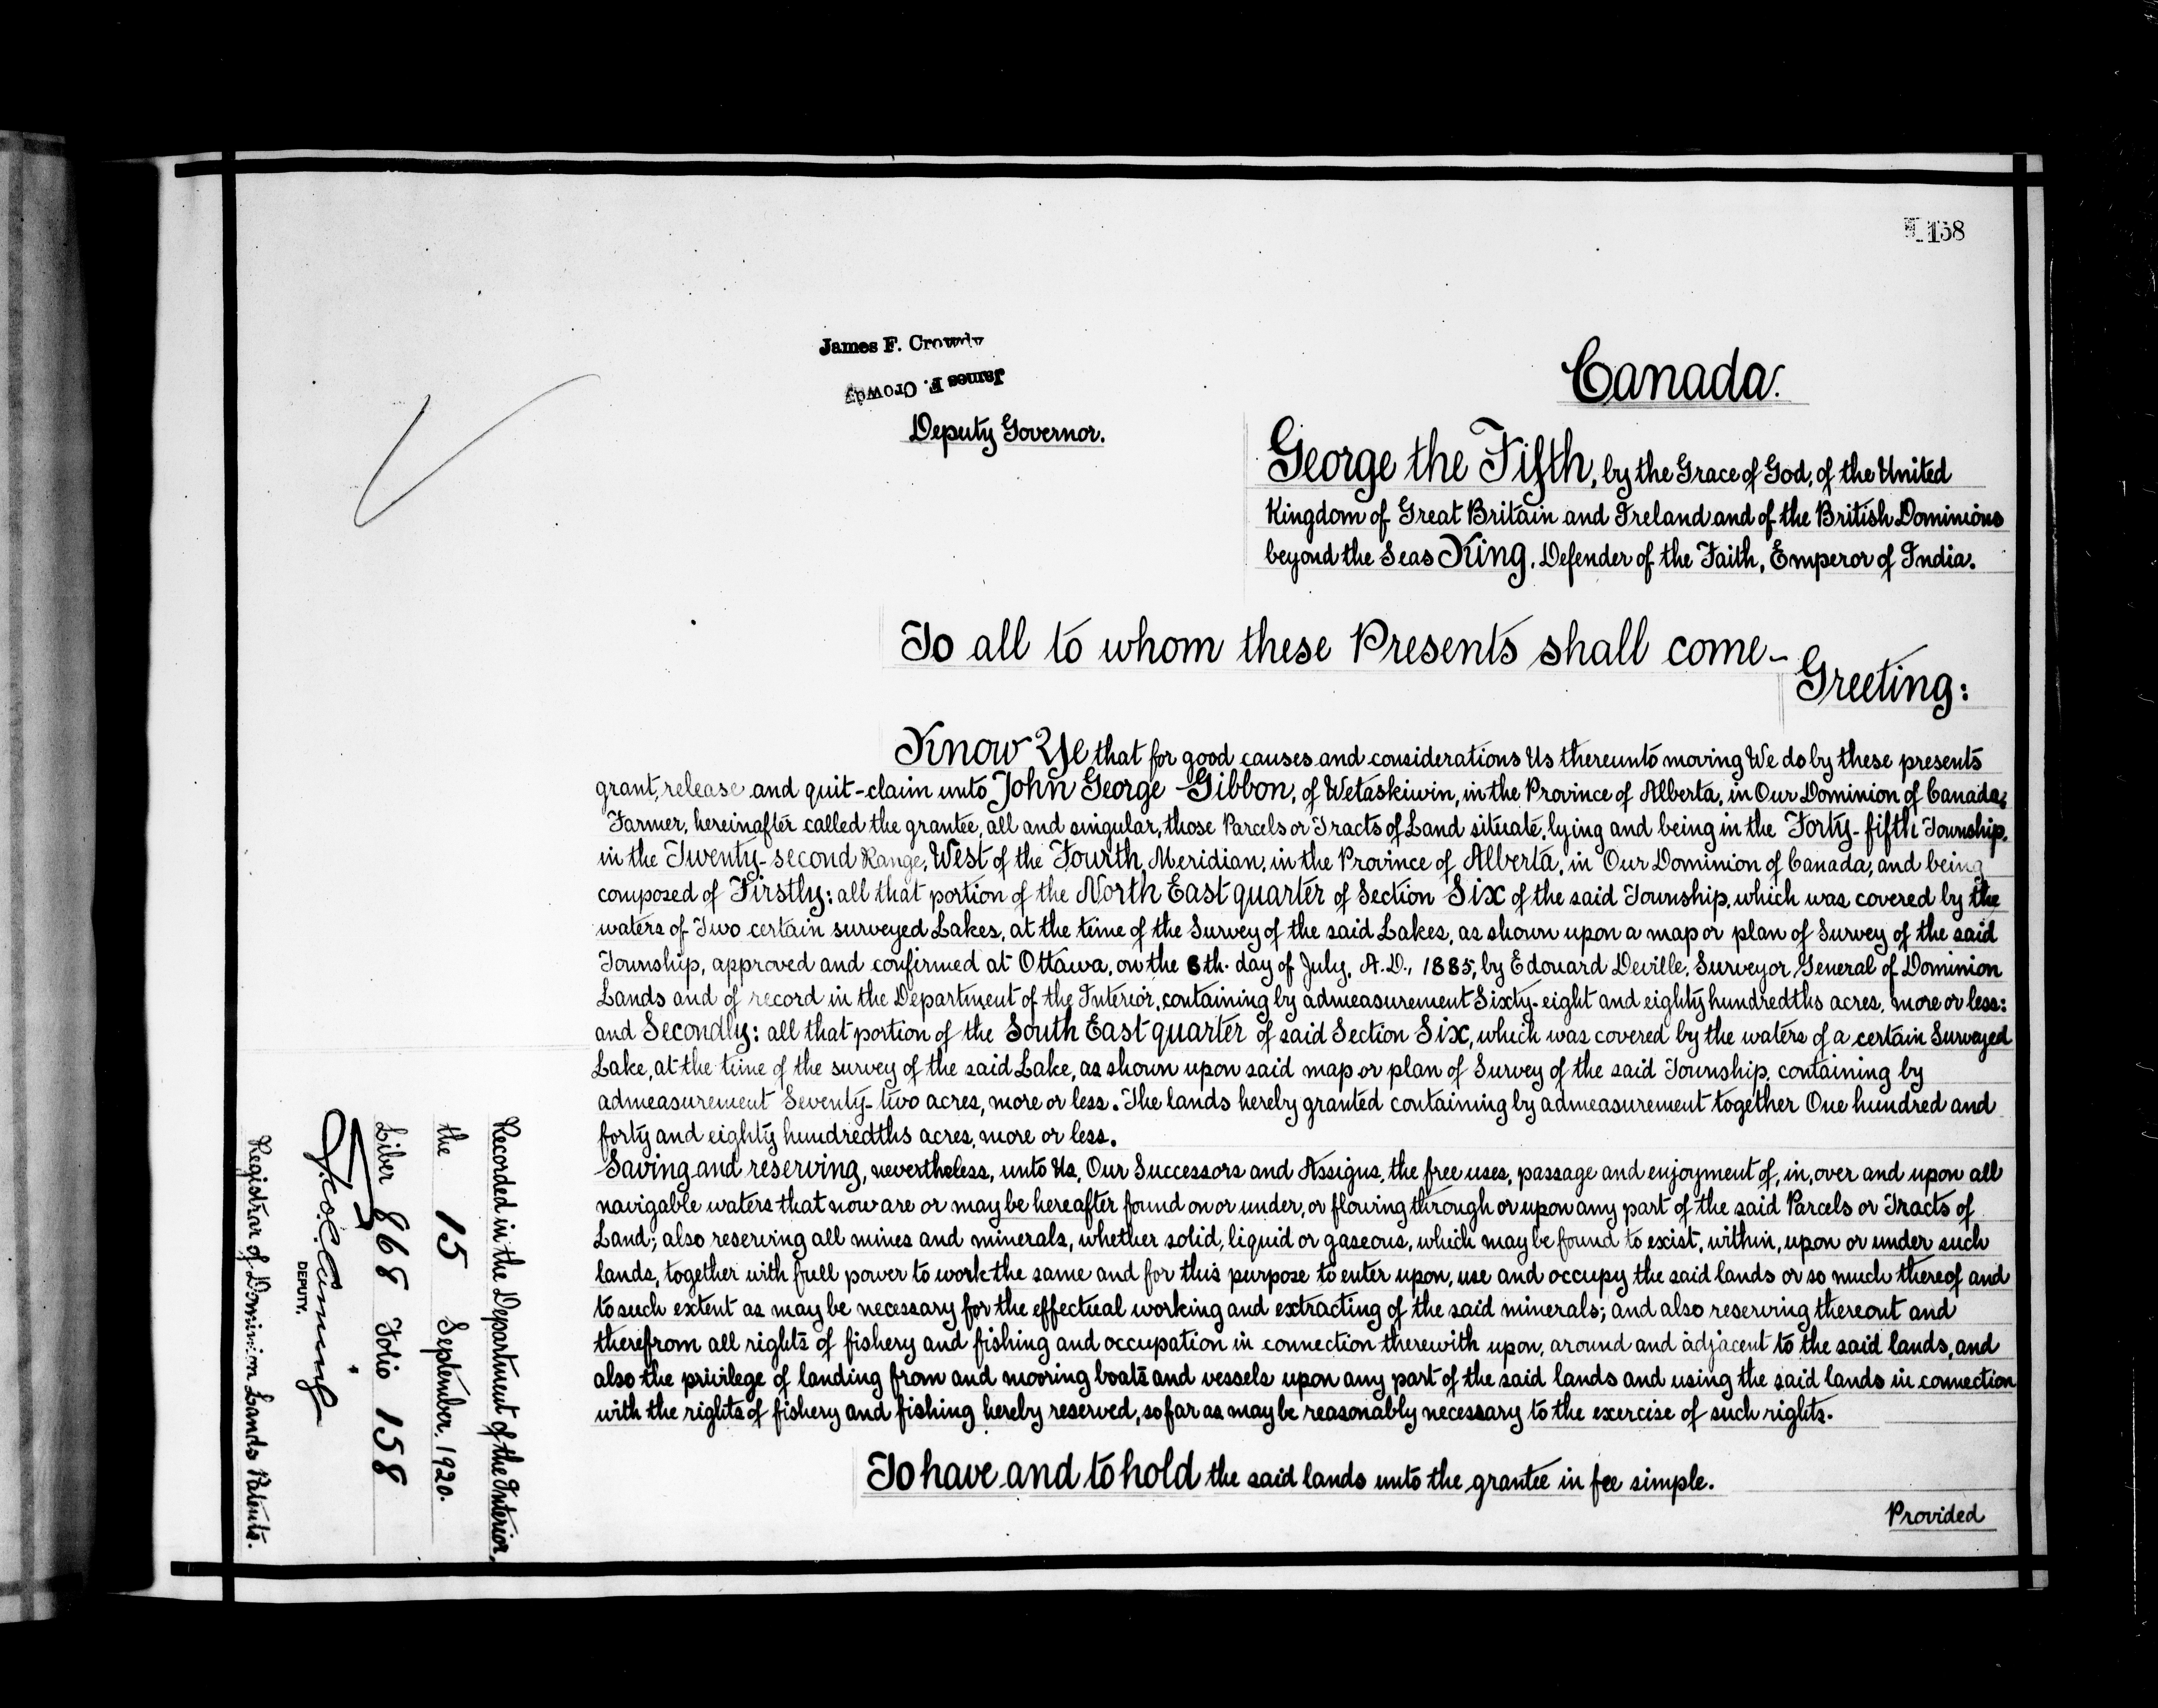 158
James F. Crowdy
James F. Crowdy
Deputy Governor.
Canada.
George the Fifth, by the Grace of God, of the United
Kingdom of Great Britain and Ireland and of the British Dominions
beyond the Seas King, Defender of the Faith, Emperor of India.
To all to whom these Presents shall come-
Greeting:
Know Ye that for good causes and considerations Us thereunto moving We do by these presents
grant, release and quit-claim unto John George Gibbon, of Wetaskiwin, in the Province of Alberta, in Our Dominion of Canada,
Farmer, hereinafter called the grantee, all and singular, those Parcels or Tracts of Land situate, lying and being in the Forty-fifth Township,
in the Twenty-second Range, West of the Fourth Meridian, in the Province of Alberta, in Our Dominion of Canada, and being
composed of Firstly: all that portion of the North East quarter of Section Six of the said Township, which was covered by the
waters of Two certain surveyed Lakes, at the time of the Survey of the said Lakes, as shown upon a map or plan of Survey of the said
Township, approved and confirmed at Ottawa, on the 8th. day of July, A.D., 1885, by Edouard Deville, Surveyor General of Dominion
Lands and of record in the Department of the Interior, containing by admeasurement Sixty-eight and eighty hundredths acres, more or less:
and Secondly: all that portion of the South East quarter of said Section Six, which was covered by the waters of a certain Surveyed
Lake, at the time of the survey of the said Lake, as shown upon said map or plan of Survey of the said Township, containing by
admeasurement Seventy-two acres, more or less. The lands hereby granted containing by admeasurement together One hundred and
forty and eighty hundredths acres, more or less.
Saving and reserving, nevertheless, unto Us, Our Successors and Assigns, the free uses, passage and enjoyment of, in, over and upon all
navigable waters that now are or may be hereafter found on or under, or flowing through or upon any part of the said Parcels or Tracts of
Land; also reserving all mines and minerals, whether solid, liquid or gaseous, which may be found to exist, within, upon or under such
lands, together with full power to work the same and for this purpose to enter upon, use and occupy the said lands or so much thereof and
to such extent as may be necessary for the effectual working and extracting of the said minerals; and also reserving thereout and
therefrom all rights of fishery and fishing and occupation in connection therewith upon, around and adjacent to the said lands, and
also the privilege of landing from and mooring boats and vessels upon any part of the said lands and using the said lands in connection
with the rights of fishery and fishing hereby reserved, so far as may be reasonably necessary to the exercise of such rights.
To have and to hold the said lands unto the grantee in fee simple.
Provided
Recorded in the Department of the Interior,
the 15 September, 1920.
Liber 868 Folio 158
DEPUTY.
Registrar of Dominion Lands Patents.